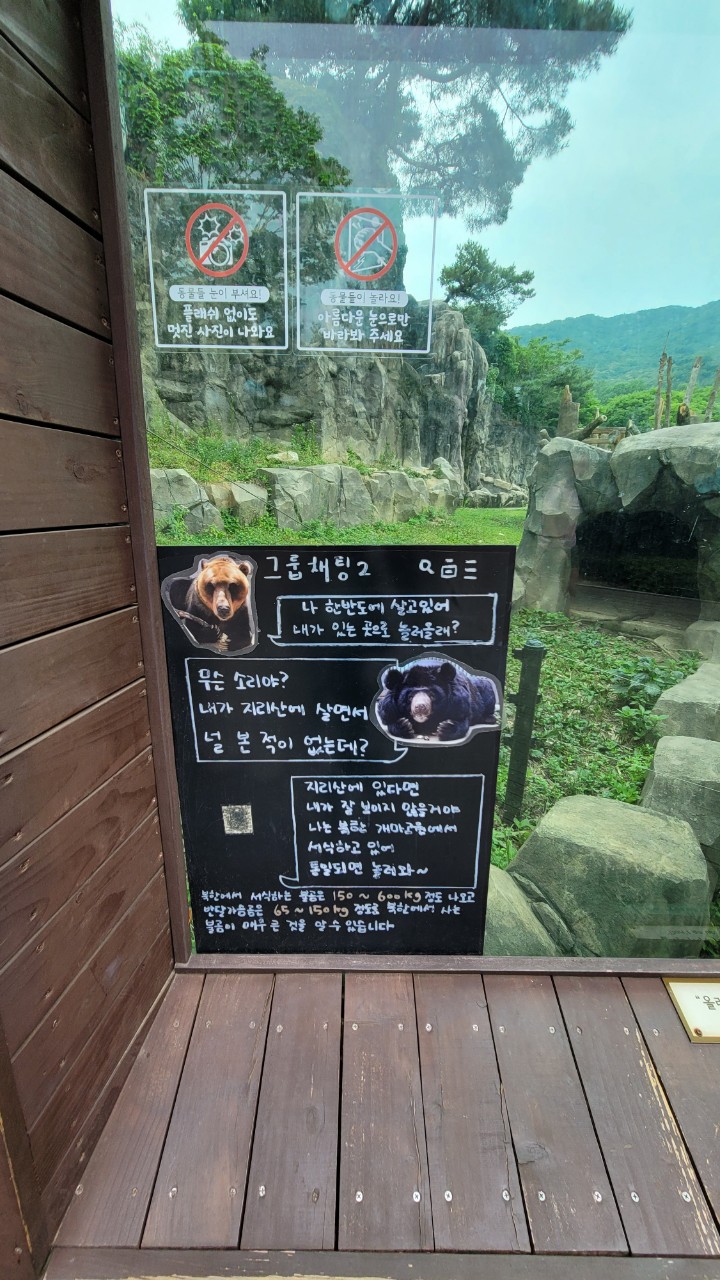 동물들 눈이 부셔요!
플래쉬 없이도
멋진 사진이 나와요
동물들이 놀라요!
아름다운 눈으로만
바라봐 주세요
그룹채팅2
나 한반도에 살고있어
내가 있는 곳으로 놀러올래?
무슨 소리야?
내가 지리산에 살면서
널 본 적이 없는데?
지리산에 있다면
내가 잘 보이지 않을거야
나는 북한 개마고원에서
서식하고 있어
통일되면 놀러와~
북한에서 서식하는 불곰은 150 ~ 600kg 정도 나오고
반달가슴곰은 65 ~ 150kg 정도로 북한에서 사는
불곰이 매우 큰 것을 알 수 있습니다